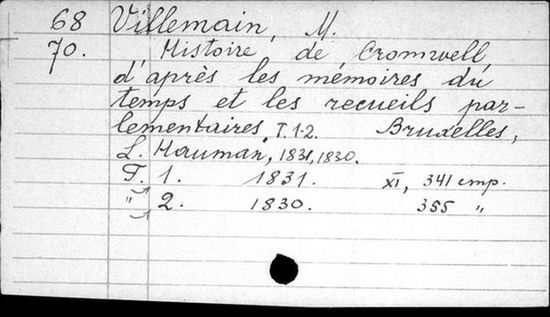 68 Villemain, M.
70. Histoire de Cromwell,
d'après les mémoires du
temps et les recueils par-
lementaires, T. 1-2. Bruxelles,
L. Hauman, 1831, 1830.
T. 1. 1831. XI, 341 стр.
" 2. 1830. 355 "